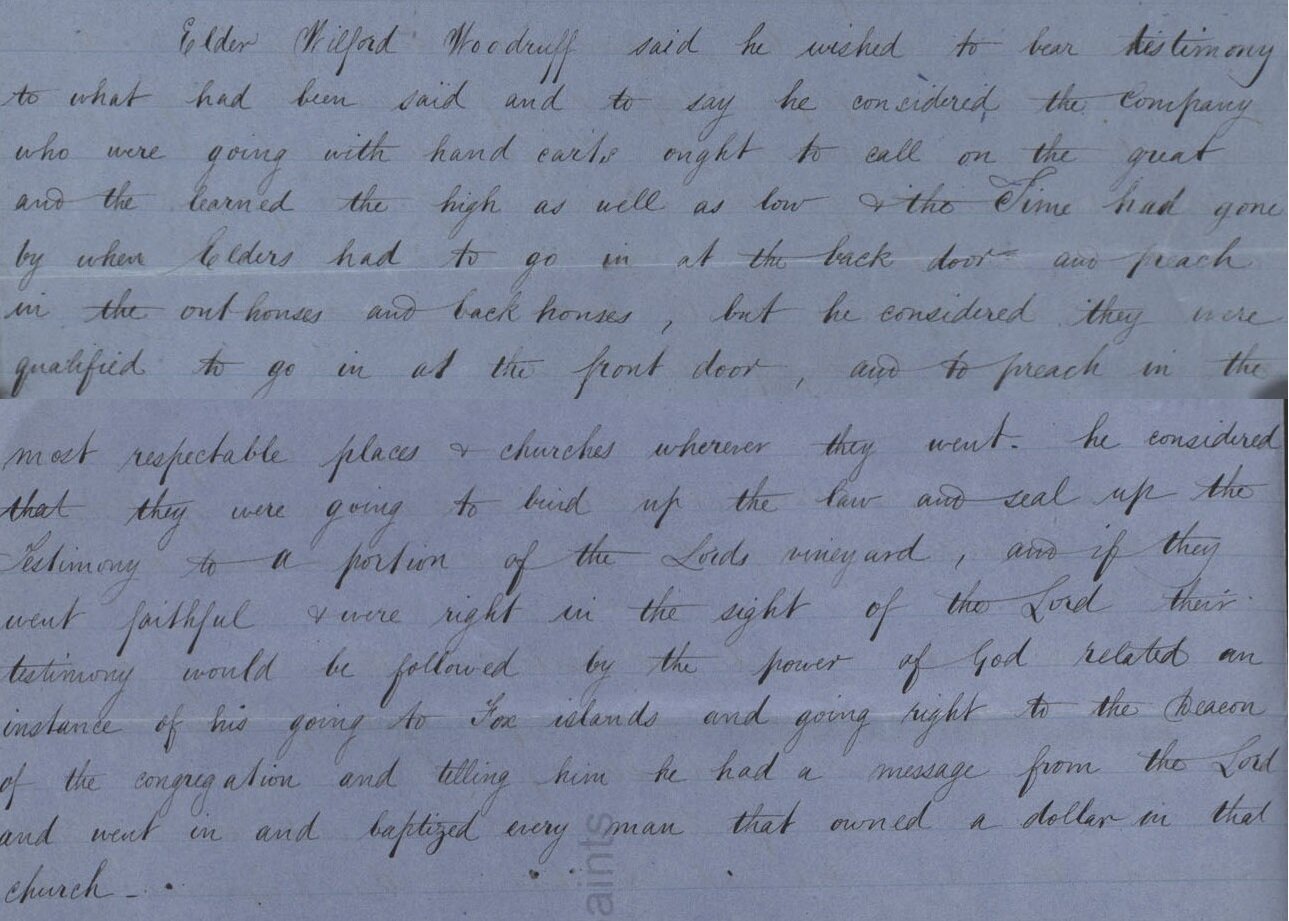 Elder Wilford Woodruff said he wished to bear testimony
to what had been said and to say he considered the Company
who were going with hand carts ought to call on the great
and the learned the high as well as low & the Time had gone
by when Elders had to go in at the back door and preach
in the outhouses and back houses, but he considered they were
qualified to go in at the front door, and to preach in the
most respectable places & churches wherever they went. he considered
that they were going to bind up the law and seal up the
Testimony to a portion of the Lords vineyard, and if they
went faithful & were right in the sight of the Lord their
testimony would be followed by the power of God related an
instance of his going to Fox islands and going right to the Deacon
of the congregation and telling him he had a message from the Lord
and went in and baptized every man that owned a dollar in that
church -
aints